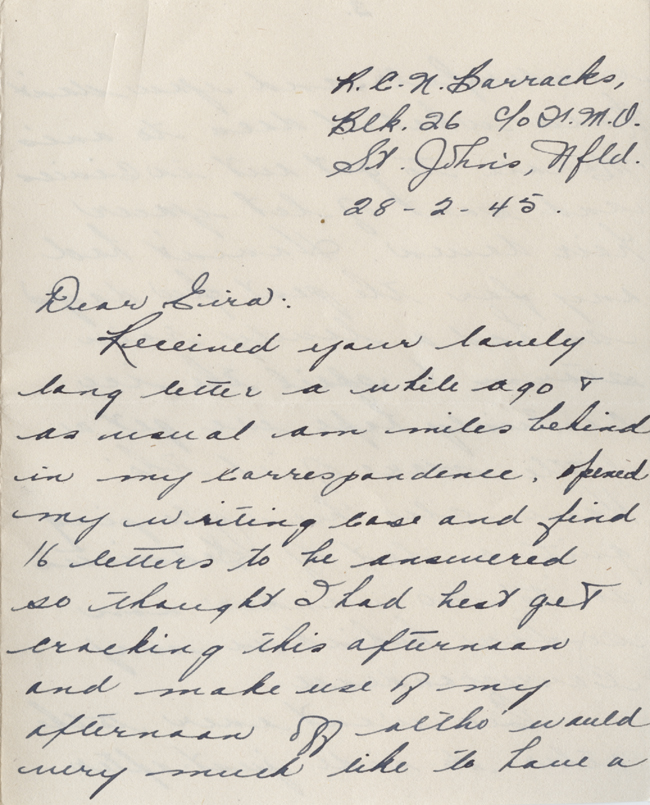 R.C.N. Barracks,
Blk. 26 c/o F.M.O.
St. John's, Nfld.
28-2-45.
Dear Eira:
Received your lovely
long letter a while ago &
as usual am miles behind
in my correspondence, opened
my writing case and find
16 letters to be answered
so thought I had best get
cracking this afternoon
and make use of my
afternoon off altho would
very much like to have a